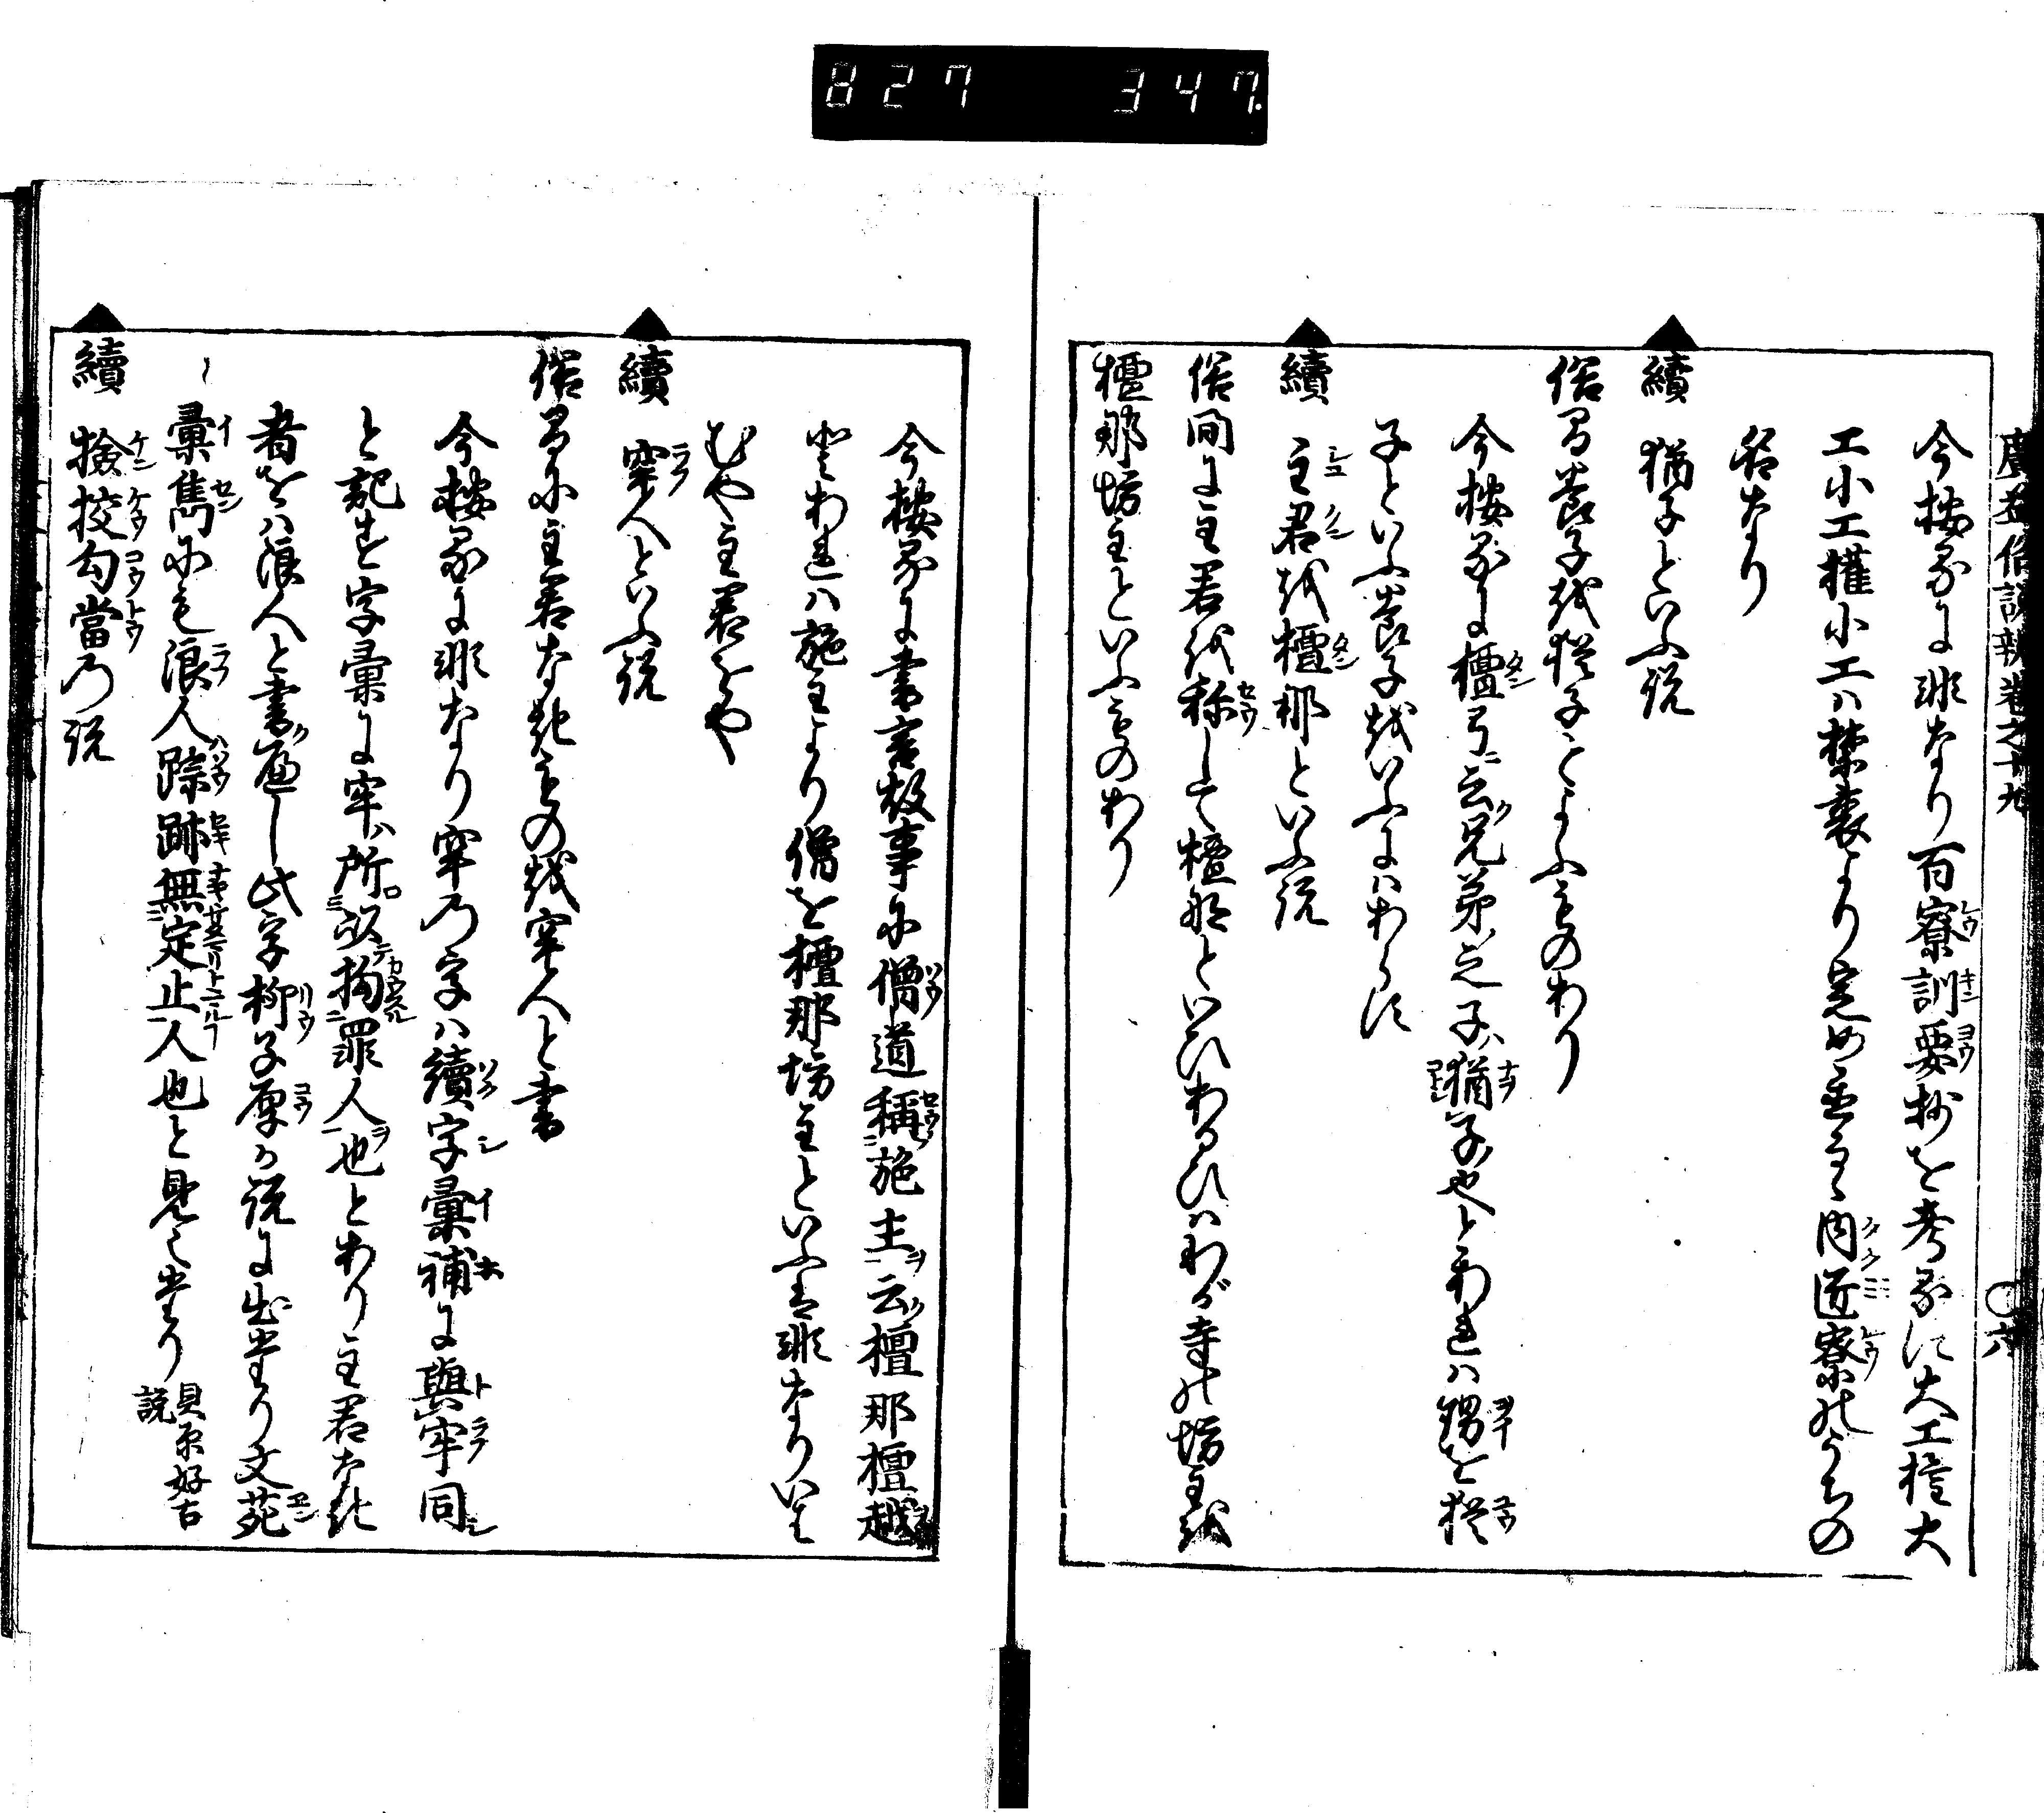 827 347.
廣益俗説辨卷之十九 ○六
今按るに非なり百寮訓要抄を考るに大工權大
工小工權小工ハ禁裏より定め置るゝ内匠寮のうちの
名なり
續 猶子といふ説
俗間養子を猶子といふものあり
今按るに檀弓云兄弟之子ハ猶子也とあれハ甥を猶
子といふ養子をいふにハあらす
續 主君を檀那といふ説
俗間に主君を称して檀那といひあるひハわが寺の坊主を
檀那坊主といふものあり
今按るに書言故事に僧道稱施主云檀那檀越
とあれハ施主より僧を檀那坊主といふは非なりいは
むや主君をや
續 牢人といふ説
俗間に主君なきものを牢人と書
今按るに非なり牢の字ハ續字彙補に與牢同
と記す字彙に牢ハ所以拘罪人也とあり主君なき
者をハ浪人と書へし此字柳子厚か説に出たり文苑
彙雋にも浪人踪跡無定止人也と見えたり 貝原好古説
續 撿挍勾當の説